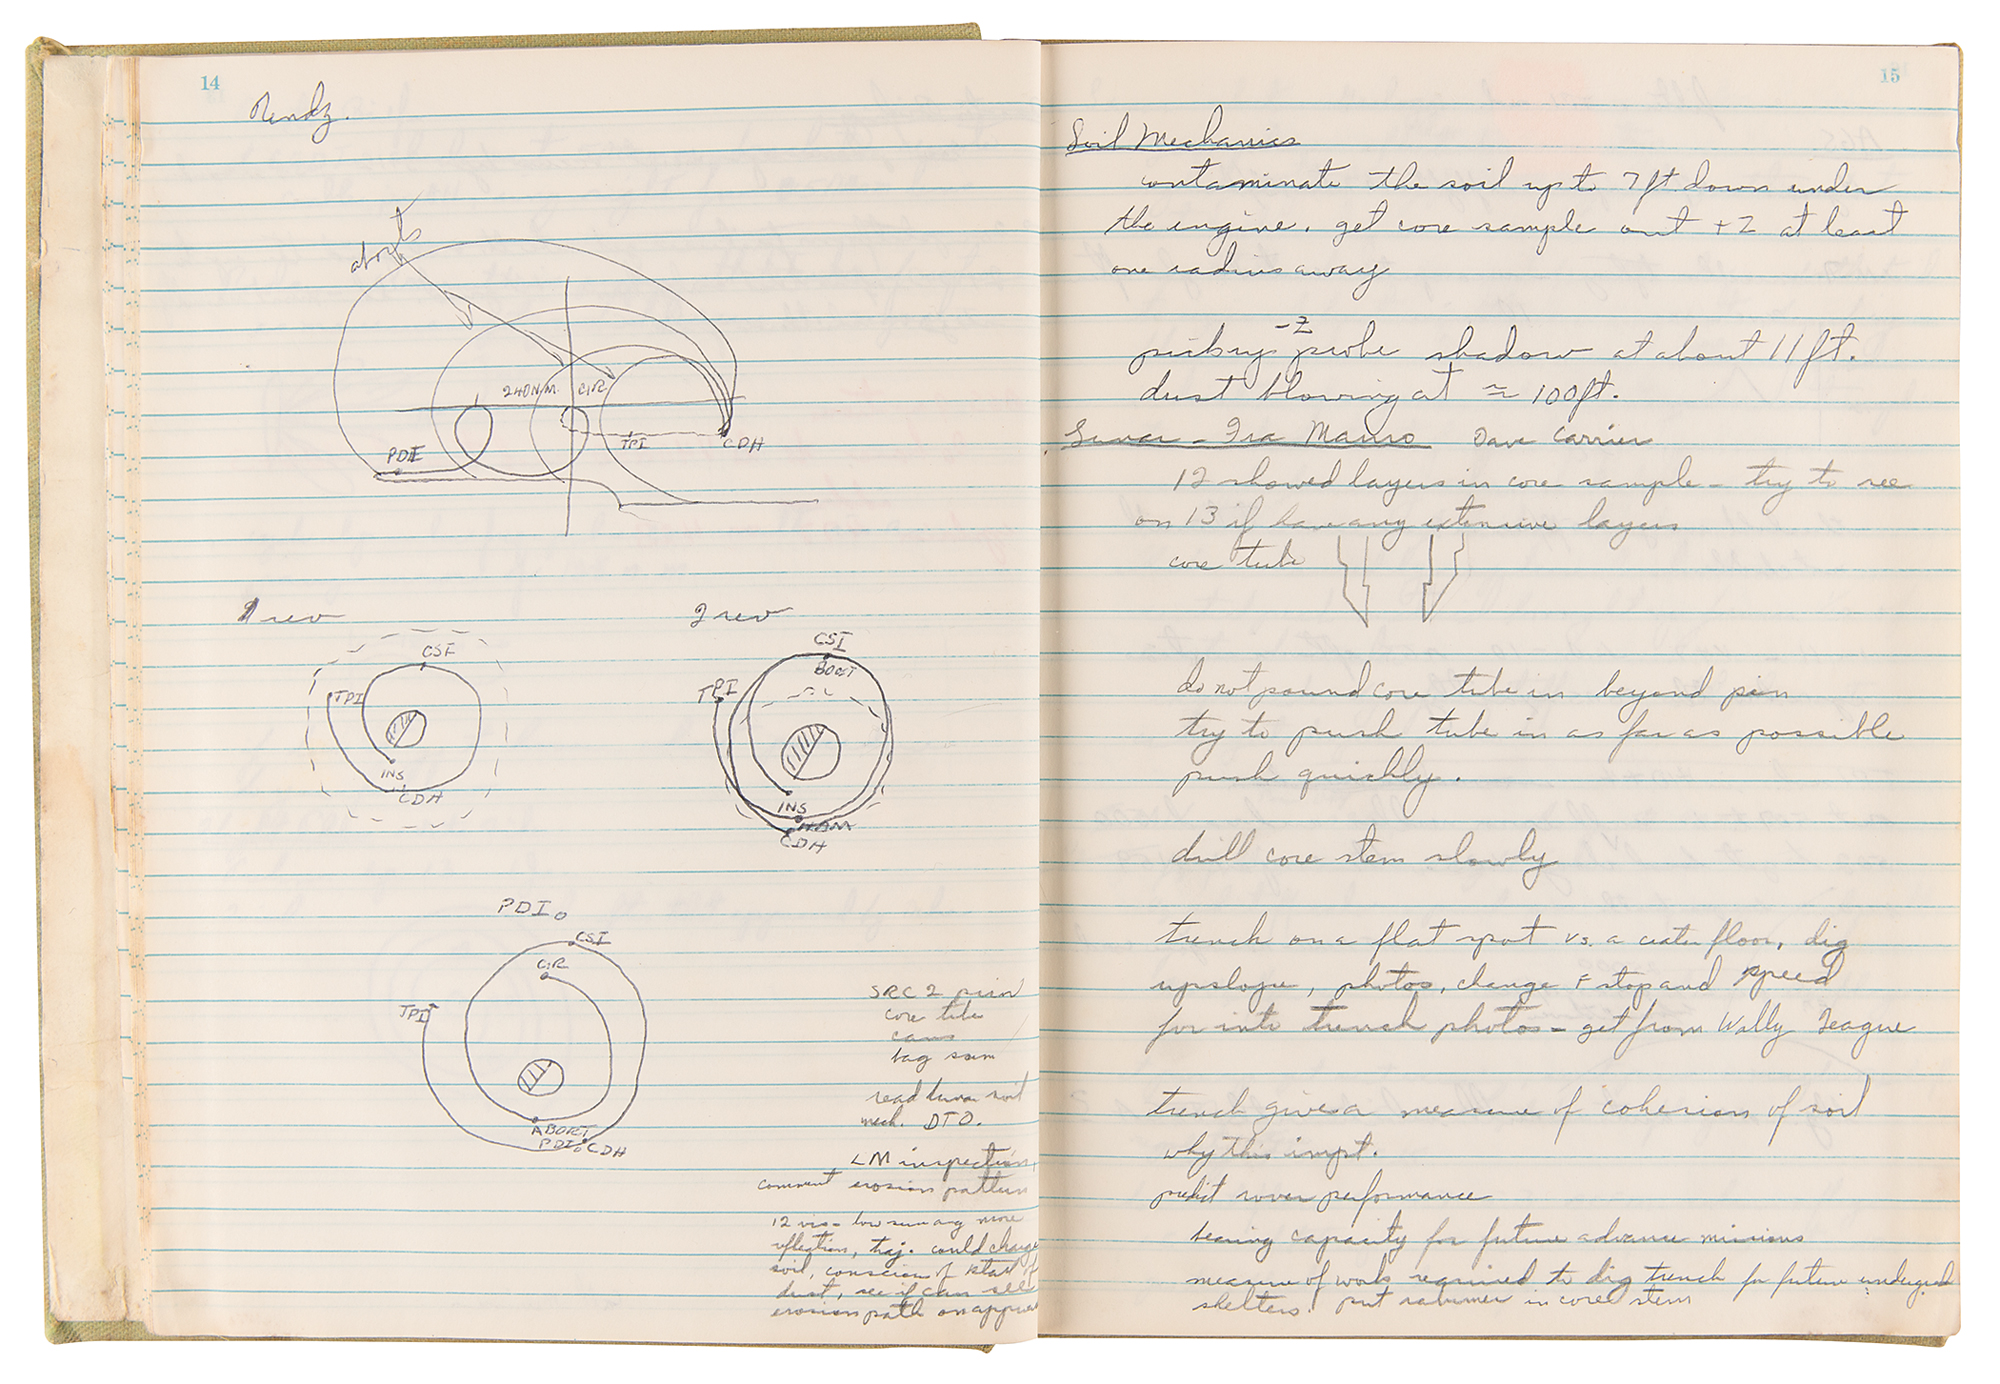 14
Rendz.
aborts
240 N.M. CIR
PDI
TPI
CDH
1 rev
2 rev
CSI
TPI
INS
CDH
CSI
BOOST
TPI
INS
HAM
CDH
PDI0
CSI
CIR
TPI
ABORT
PDI0 CDH
SRC 2
core tube
cans
bag sam
read lunar soil
mech. DTO.
LM inspection,
comment erosion pattern
12 vis - low sun ang more
reflection, traj. could change
soil, conscious of start of
dust, see if can see
erosion path on approach
15
Soil Mechanics
contaminate the soil up to 7 ft down under
the engine. get core sample out +Z at least
one radius away
pickup -Z probe shadow at about 11 ft.
dust blowing at ≈ 100 ft.
Dave Carrier
12 showed layers in core sample - try to see
on 13 if have any extensive layers
core tube
do not pound core tube in beyond pin
try to push tube in as far as possible
push quickly.
drill core stem slowly
trench on a flat spot vs. a crater floor, dig
upslope, photos, change F stop and speed
for into trench photos - get from Wally Teague
trench give a measure of cohesion of soil
why this impt.
predict rover performance
bearing capacity for future advance missions
measure of work required to dig trench for future undergrd
shelters. put rammer in core stem